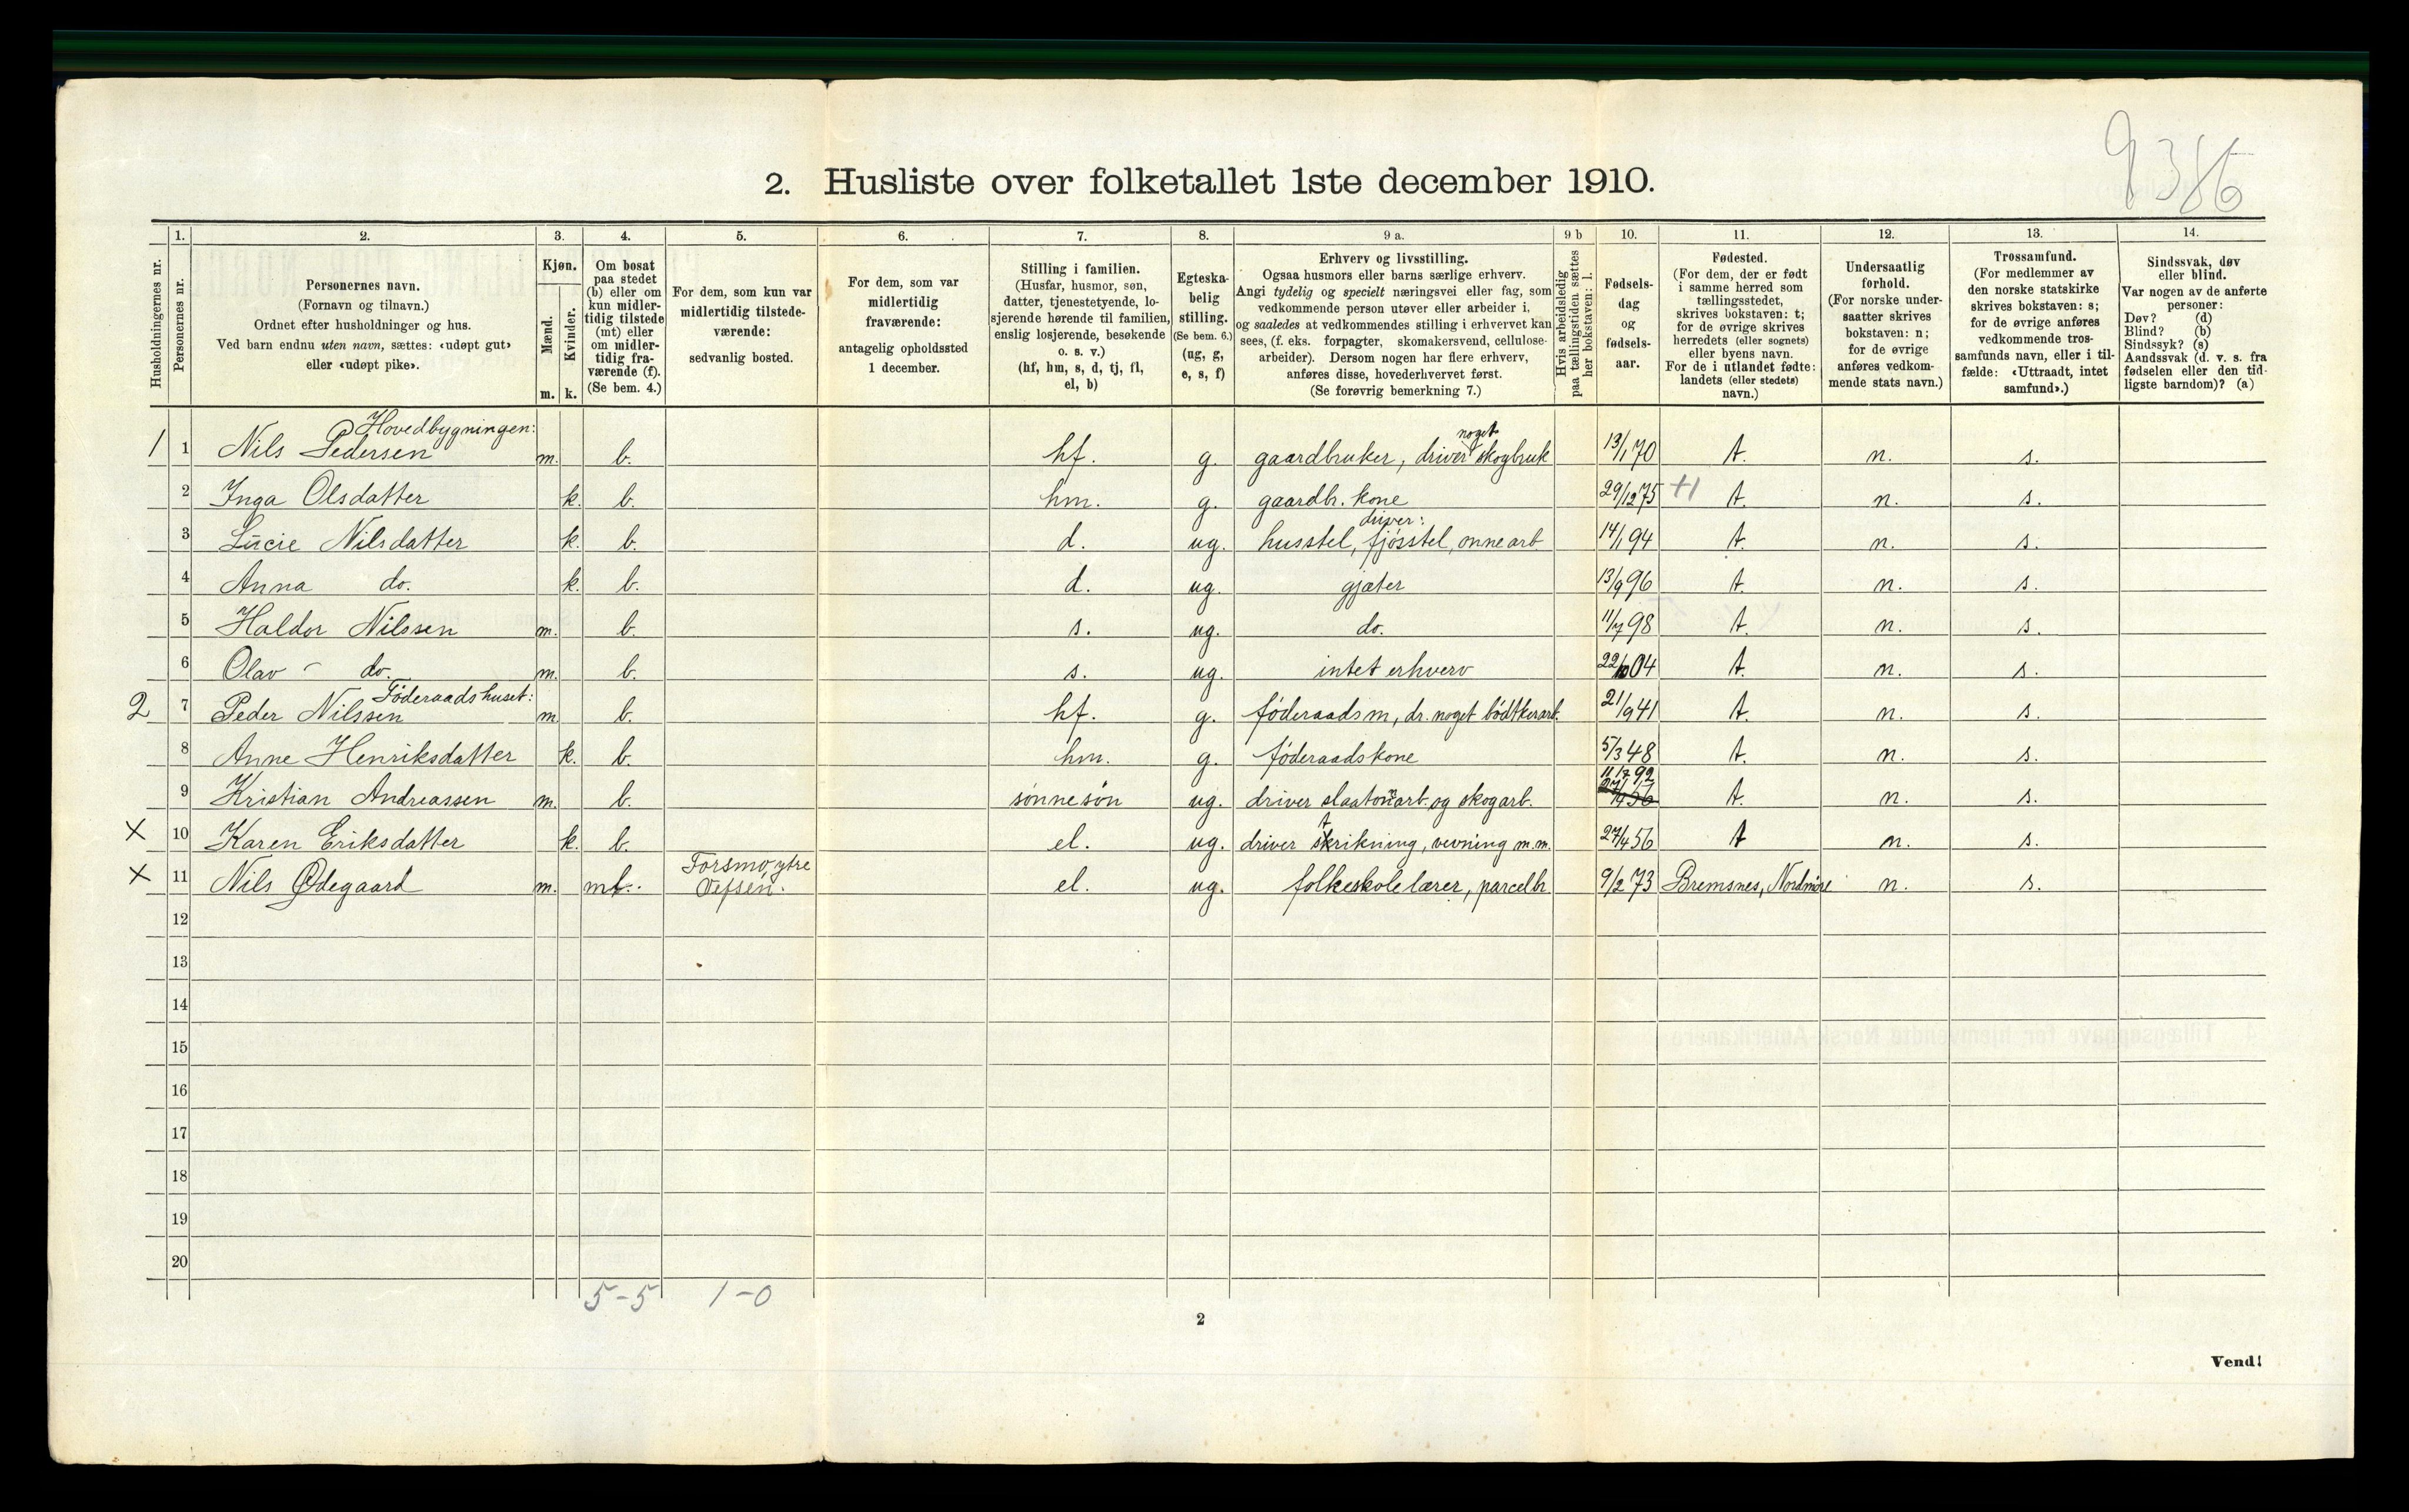 9386
2. Husliste over folketallet 1ste december 1910.
1. 2. 3. 4. 5. 6. 7. 8. 9 a. 9 b 10. 11. 12. 13. 14.
Husholdningernes nr.
Personernes nr.
Personernes navn.
(Fornavn og tilnavn.)
Ordnet efter husholdninger og hus.
Ved barn endnu uten navn, sættes: «udøpt gut»
eller «udøpt pike».
Kjøn.
Mænd.
Kvinder.
m. k.
Om bosat
paa stedet
(b) eller om
kun midler-
tidig tilstede
(mt) eller
om midler-
tidig fra-
værende (f).
(Se bem. 4.)
For dem, som kun var
midlertidig tilstede-
værende:
sedvanlig bosted.
For dem, som var
midlertidig
fraværende:
antagelig opholdssted
1 december.
Stilling i familien.
(Husfar, husmor, søn,
datter, tjenestetyende, lo-
sjerende hørende til familien,
enslig losjerende, besøkende
o. s. v.)
(hf, hm, s, d, tj, fl,
el, b)
Egteska-
belig
stilling.
(Se bem. 6.)
(ug, g,
e, s, f)
Erhverv og livsstilling.
Ogsaa husmors eller barns særlige erhverv.
Angi tydelig og specielt næringsvei eller fag, som
vedkommende person utøver eller arbeider i,
og saaledes at vedkommendes stilling i erhvervet kan
sees, (f. eks. forpagter, skomakersvend, cellulose-
arbeider). Dersom nogen har flere erhverv,
anføres disse, hovederhvervet først.
(Se forøvrig bemerkning 7.)
Hvis arbeidsledig
paa tællingstiden sættes
her bokstaven: l.
Fødsels-
dag
og
fødsels-
aar.
Fødested.
(For dem, der er født
i samme herred som
tællingsstedet,
skrives bokstaven: t;
for de øvrige skrives
herredets (eller sognets)
eller byens navn.
For de i utlandet fødte:
landets (eller stedets)
navn.)
Undersaatlig
forhold.
(For norske under-
saatter skrives
bokstaven: n;
for de øvrige
anføres vedkom-
mende stats navn.)
Trossamfund.
(For medlemmer av
den norske statskirke
skrives bokstaven: s;
for de øvrige anføres
vedkommende tros-
samfunds navn, eller i til-
fælde: «Uttraadt, intet
samfund».)
Sindssvak, døv
eller blind.
Var nogen av de anførte
personer:
Døv? (d)
Blind? (b)
Sindssyk? (s)
Aandssvak (d. v. s. fra
fødselen eller den tid-
ligste barndom)? (a)
Hovedbygningen:
1 1 Nils Pedersen m. b. hf. g. gaardbruker, driver noget skogbruk 13/1 70 t. n. s.
2 Inga Olsdatter k. b. hm. g. gaardbr. kone 29/12 75 +1 t. n. s.
3 Lucie Nilsdatter k. b. d. ug. driver: husstel, fjøsstel, onnearb 14/1 94 t. n. s.
4 Anna do. k. b. d. ug. gjæter 13/9 96 t. n. s.
5 Haldor Nilssen m. b. s. ug. do. 11/7 98 t. n. s.
6 Olav do. m. b. s. ug. intet erhverv 22/10 04 t. n. s.
Föderaadshuset:
2 7 Peder Nilssen m. b. hf. g. föderaadsm, dr. noget bödtkerarb. 21/9 41 t. n. s.
8 Anne Henriksdatter k. b. hm. g. föderaadskone 5/3 48 t. n. s.
9 Kristian Andreassen m. b. sönnesön ug. driver slaatonnarb. og skogarb. 11/7 92 t. n. s.
X 10 Karen Eriksdatter k. b. el. ug. driver strikning, vevning m.m. 27/4 56 t n. s.
X 11 Nils Ødegaard m. mt. Forsmo, ytre Vefsen. el. ug. folkeskolelærer, parcelbr. 9/2 73 Bremsnes, Nordmöre n. s.
12
13
14
15
16
17
18
19
20
5-5 1-0
2
Vend!